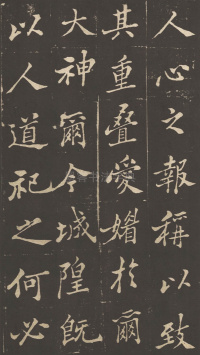 人心之報稱以致
其重疊愛媚於爾
大神爾今城隍旣
以人道祀之何必